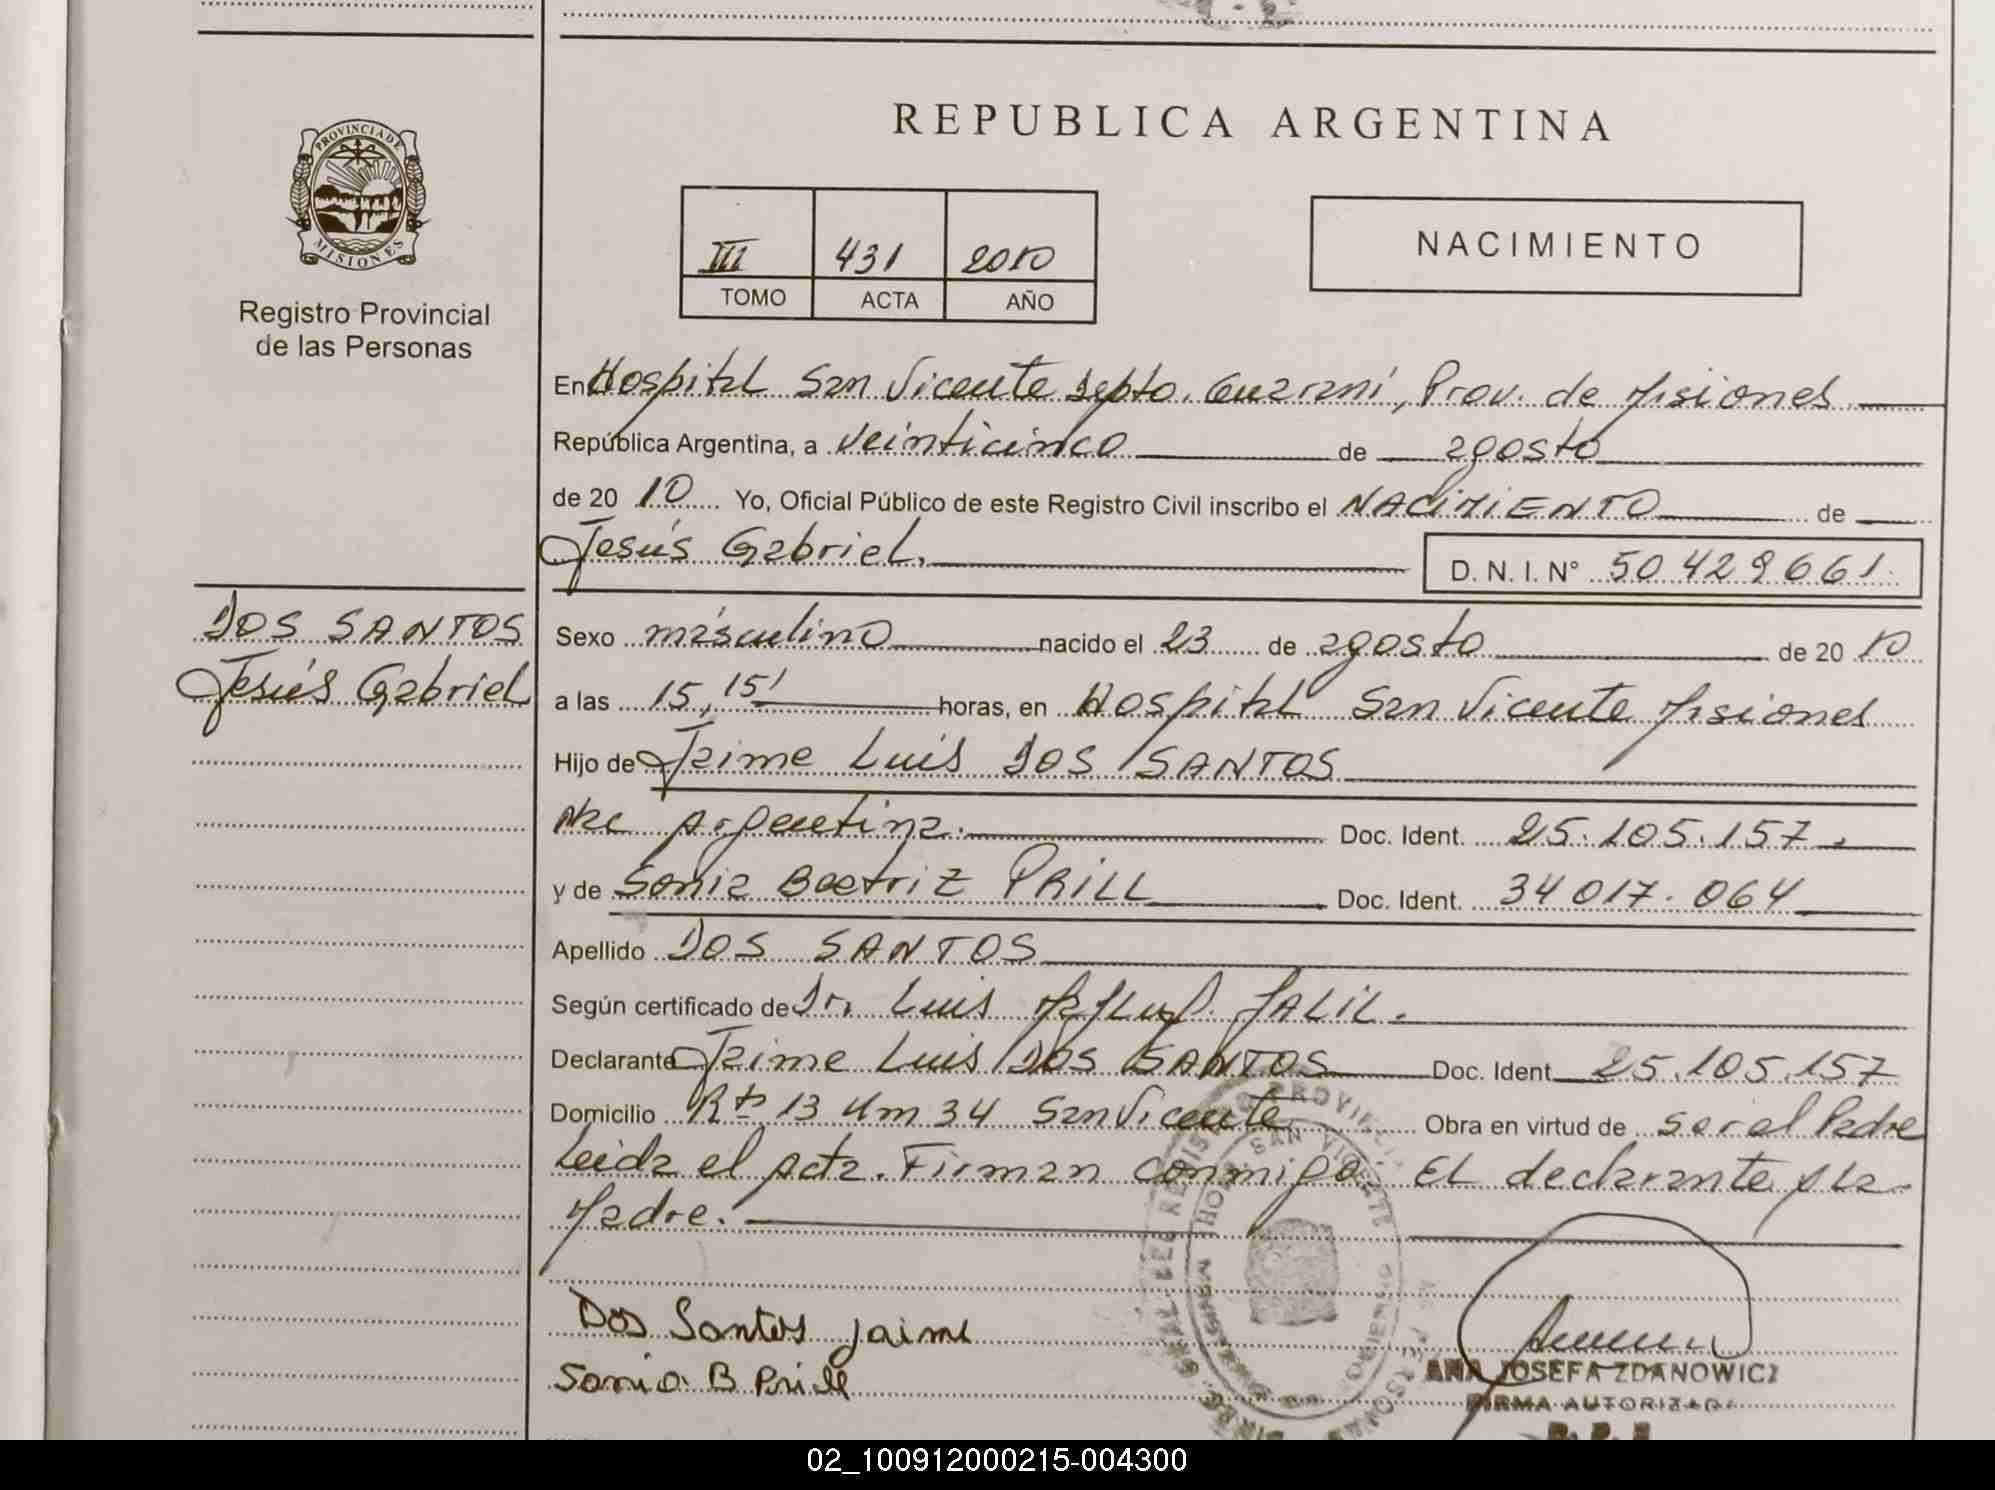 REPUBLICA ARGENTINA
PROVINCIA DE MISIONES
Registro Provincial
de las Personas
III 431 2010
TOMO ACTA AÑO
NACIMIENTO
En Hospital San Vicente Depto. Guaraní, Prov. de Misiones
República Argentina, a veinticinco de agosto
de 20 10 Yo, Oficial Público de este Registro Civil inscribo el NACIMIENTO de
Jesús Gabriel.
D. N. I. N° 50 429 661.
DOS SANTOS
Jesús Gabriel
Sexo masculino nacido el 23 de agosto de 20 10
a las 15,15' horas, en Hospital San Vicente Misiones
Hijo de Jaime Luis DOS SANTOS
Nac Argentina. Doc. Ident. 25.105.157.
y de Sonia Beatriz PRILL Doc. Ident. 34 017.064
Apellido DOS SANTOS
Según certificado de Dr. Luis JALIL.
Declarante Jaime Luis DOS SANTOS Doc. Ident. 25.105.157
Domicilio Rta 13 Km 34 San Vicente Obra en virtud de ser el Padre
Leida el Acta. Firman conmigo. EL declarante y La
Madre.
Dos Santos Jaime
Sonia B Prill
ANA JOSEFA ZDANOWICZ
FIRMA AUTORIZADA
R. P. P.
02_100912000215-004300